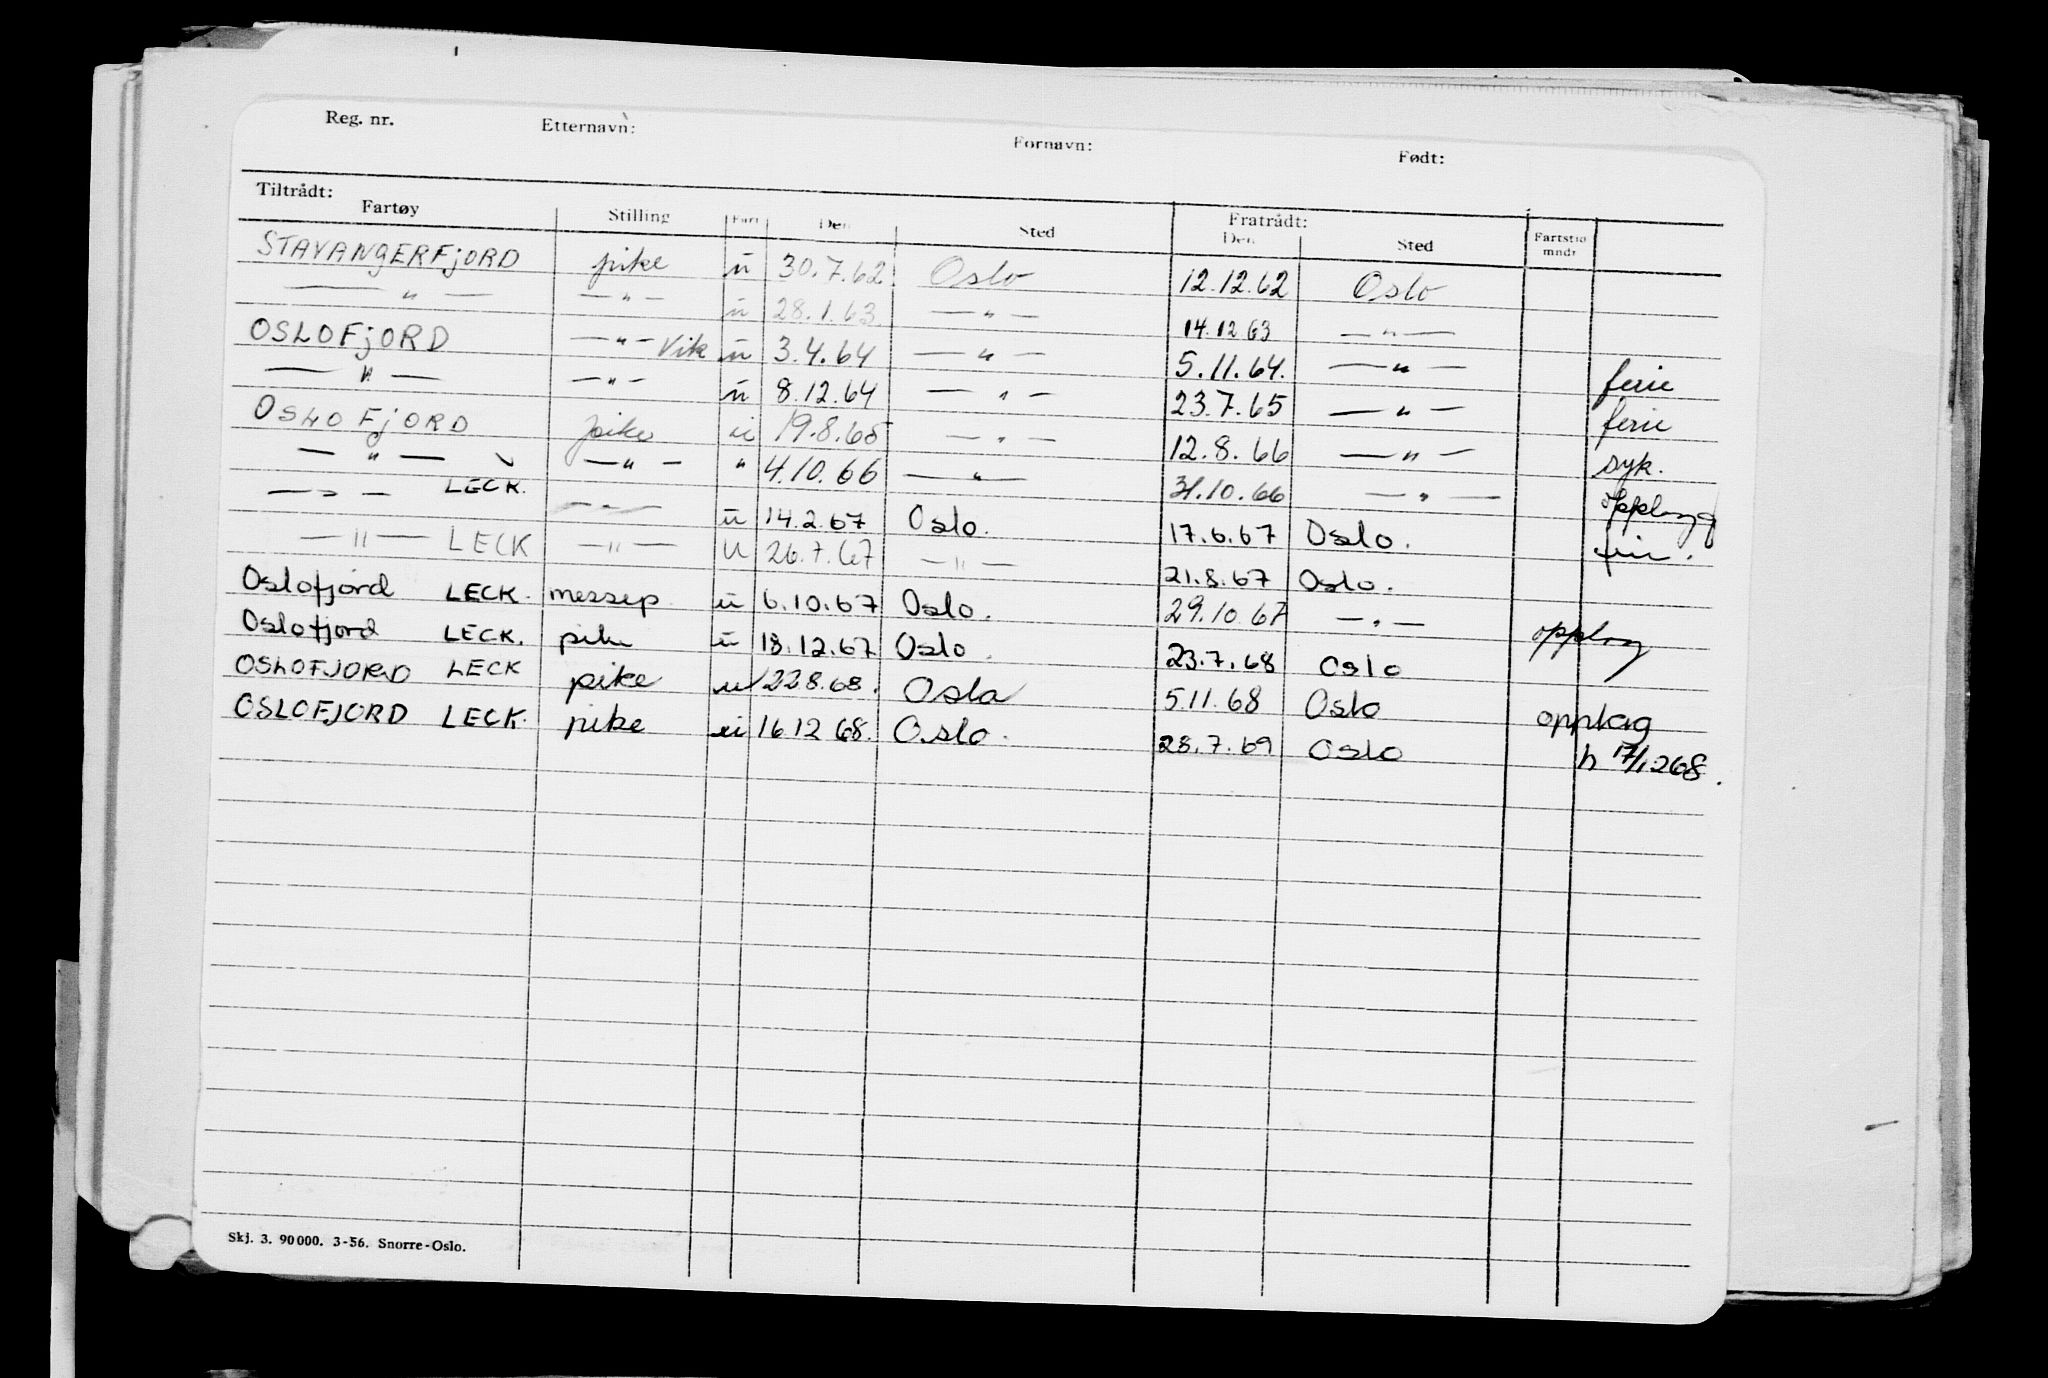 Reg. nr. Etternavn: Fornavn: Født:
Tiltrådt: Fratrådt:
Fartøy Stilling Fart Den Sted Den Sted Fartstid mndr
STAVANGERFjORD pike u 30.7.62 Oslo 12.12.62 Oslo
— " — — " — u 28.1.63 — " — 14.12.63 — " —
OSLOFjORD — " — Vik u 3.4.64 — " — 5.11.64. — " — ferie
— " — — " — u 8.12.64 — " — 23.7.65 — " — ferie
OSLOFjORD pike u 19.8.65 — " — 12.8.66 — " — syk.
— " — — " — " 4.10.66 — " — 31.10.66 — " — opplagg
— " — LECK. — " — u 14.2.67 Oslo. 17.6.67 Oslo.
— " — LECK — " — u 26.7.67 — " — 21.8.67 Oslo.
Oslofjord LECK. messep u 6.10.67 Oslo. 29.10.67 — " — opplag
Oslofjord LECK. pike u 18.12.67 Oslo. 23.7.68 Oslo
OSLOFJORD LECK pike u 22.8.68. Oslo 5.11.68 Oslo opplag
OSLOFJORD LECK. pike u 16.12.68. Oslo. 28.7.69 Oslo h 17/1268.
Skj. 3. 90000. 3-56. Snorre-Oslo.